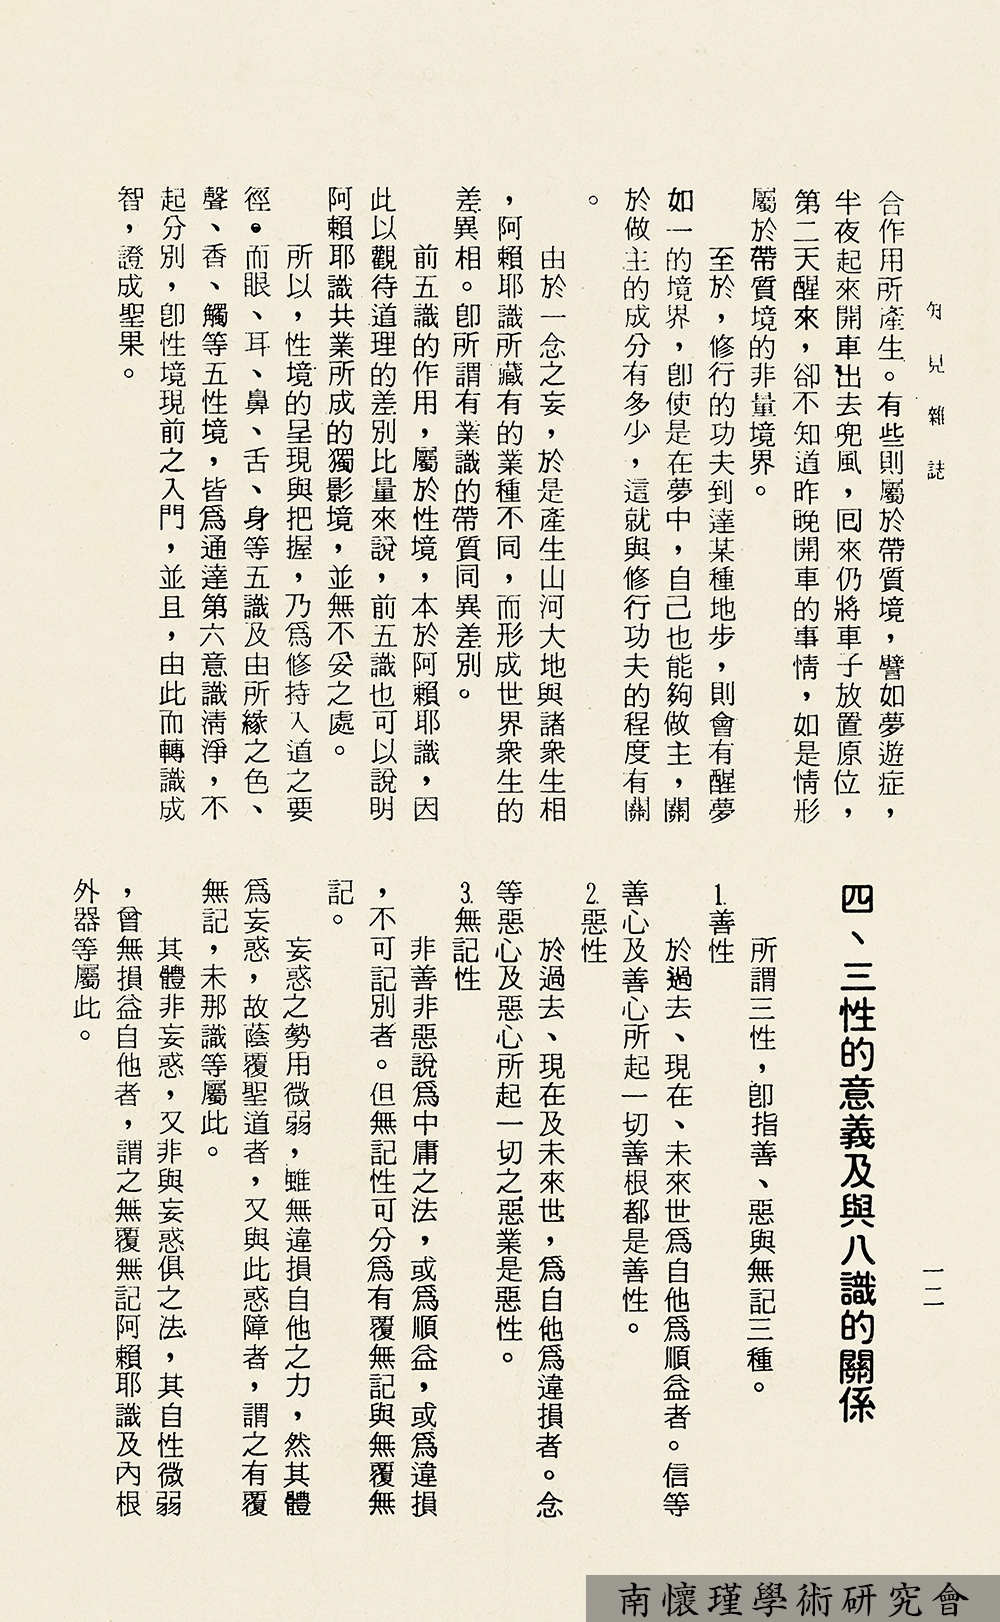 知見雜誌
合作用所產生。有些則屬於帶質境，譬如夢遊症，
半夜起來開車出去兜風，回來仍將車子放置原位，
第二天醒來，卻不知道昨晚開車的事情，如是情形
屬於帶質境的非量境界。
至於，修行的功夫到達某種地步，則會有醒夢
如一的境界，卽使是在夢中，自己也能夠做主，關
於做主的成分有多少，這就與修行功夫的程度有關
。
由於一念之妄，於是產生山河大地與諸衆生相
，阿賴耶識所藏有的業種不同，而形成世界衆生的
差異相。卽所謂有業識的帶質同異差別。
前五識的作用，屬於性境，本於阿賴耶識，因
此以觀待道理的差別比量來說，前五識也可以說明
阿賴耶識共業所成的獨影境，並無不妥之處。
所以，性境的呈現與把握，乃爲修持入道之要
徑。而眼、耳、鼻、舌、身等五識及由所緣之色、
聲、香、觸等五性境，皆爲通達第六意識淸淨，不
起分別，卽性境現前之入門，並且，由此而轉識成
智，證成聖果。
四、三性的意義及與八識的關係
所謂三性，卽指善、惡與無記三種。
1.善性
於過去、現在、未來世爲自他爲順益者。信等
善心及善心所起一切善根都是善性。
2.惡性
於過去、現在及未來世，爲自他爲違損者。念
等惡心及惡心所起一切之惡業是惡性。
3.無記性
非善非惡說爲中庸之法，或爲順益，或爲違損
，不可記別者。但無記性可分爲有覆無記與無覆無
記。
妄惑之勢用微弱，雖無違損自他之力，然其體
爲妄惑，故蔭覆聖道者，又與此惑障者，謂之有覆
無記，未那識等屬此。
其體非妄惑，又非與妄惑俱之法，其自性微弱
，曾無損益自他者，謂之無覆無記阿賴耶識及內根
外器等屬此。
一二
南懷瑾學術研究會